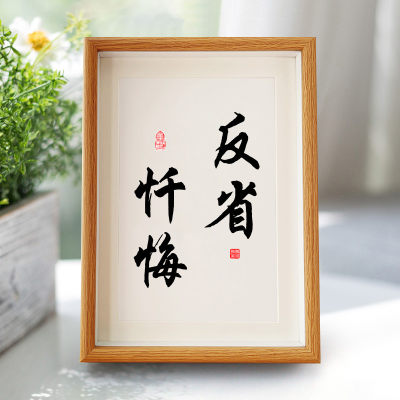 反省
忏悔